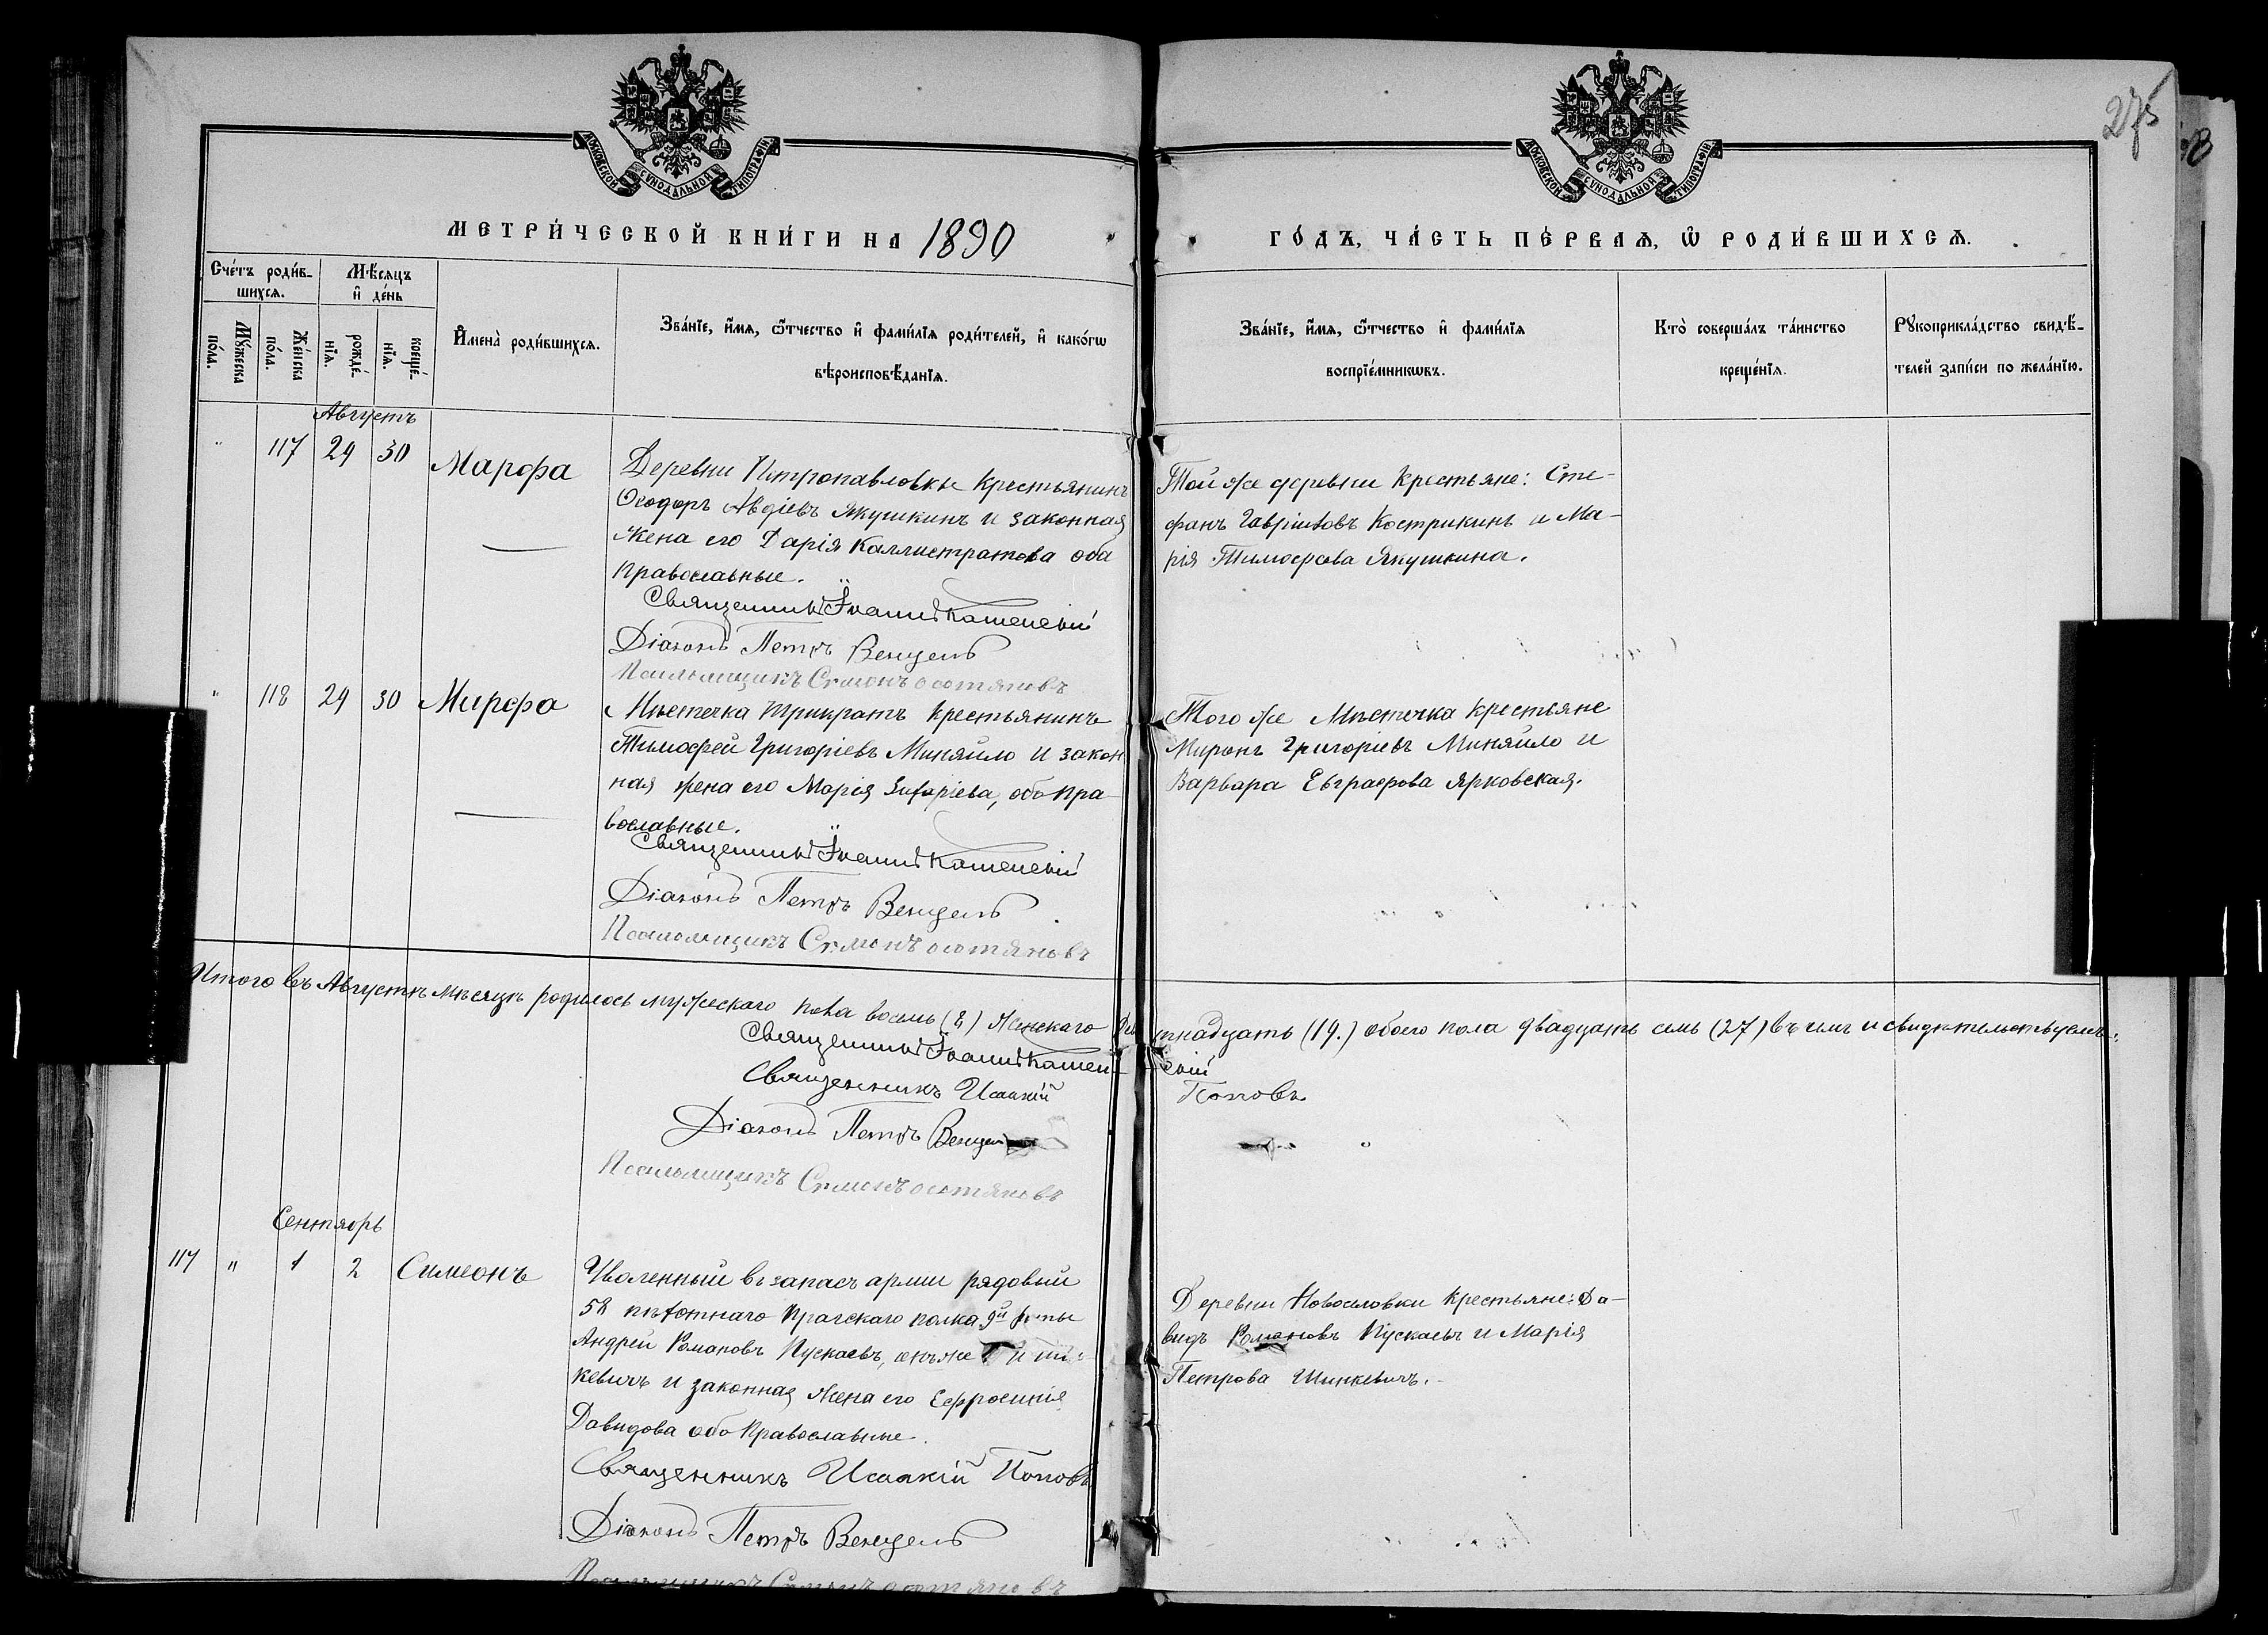 275
МОСКОВСКОЙ СѴНОДАЛЬНОЙ ТИПОГРАФІИ
МОСКОВСКОЙ СѴНОДАЛЬНОЙ ТИПОГРАФІИ
МЕТРИ́ЧЕСКОЙ КНИ́ГИ НА 1890
ГО́ДЪ, ЧА́СТЬ ПЕ́РВАЯ, Ѡ РОДИ́ВШИХСЯ.
Сче́тъ роди́в-
шихся.
Мѣ́сяцъ
и҆ де́нь
Мꙋ́жеска
по́ла.
Же́нска
по́ла.
рожде́-
нїя.
креще́-
нїя.
И҆мена̀ роди́вшихся.
Зва́нїе, и҆́мя, ѻ҆́тчество и҆ фами́лїя роди́телей, и҆ како́гѡ
вѣроисповѣ́данїя.
Зва́нїе, и҆́мя, ѻ҆́тчество и҆ фами́лїя
воспрїе́мникѡвъ.
Кто̀ соверша́лъ та́инство
креще́нїя.
Рꙋкоприкла́дство свидѣ́-
телей за́писи по жела́нїю.
Августъ
" 117 29 30 Марфа
Деревни Петропавловки крестьянинъ
Ѳеодоръ Авдіевъ Якушкинъ и законная
жена его Дарія Каллистратова оба
православные.
Священникъ Іоаннъ
Діаконъ Петръ Венцель
Псаломщикъ Симонъ
Той же деревни крестьяне: Сте-
фанъ Гавриловъ Кострикинъ и Ма-
рія Тимофеева Якушкина.
" 118 29 30 Марфа
Мѣстечка Трикратъ крестьянинъ
Тимофей Григоріевъ Миняйло и закон
ная жена его Марія оба пра
вославные.
Священникъ Іоаннъ
Діаконъ Петръ Венцель
Псаломщикъ Симонъ
Того же Мѣстечка крестьяне
Миронъ Григоріевъ Миняйло и
Варвара Евграфова Ярковская.
Итого въ Августѣ мѣсяцѣ родилось мужескаго пола восемь (8) женскаго девятнадцать (19.) обоего пола двадцать семь (27) въ чемъ и свидѣтельствуемъ:
Священникъ Іоаннъ
Священникъ Исаакій Поповъ
Діаконъ Петръ Венцель
Псаломщикъ Симонъ
Сентябрь
117 " 1 2 Симеонъ
Уволенный въ запасъ арміи рядовый
58 пѣхотнаго Прагскаго полка 9й роты
Андрей Романовъ Пускаевъ, онъ же
кевичъ и законная жена его Ефросинія
Давидова оба Православные.
Священникъ Исаакій Поповъ
Діаконъ Петръ Венцель
Псаломщикъ Симонъ
Деревни Новоселовки крестьяне: Да-
видъ Романовъ Пускаевъ и Марія
Петрова Шинкевичъ.